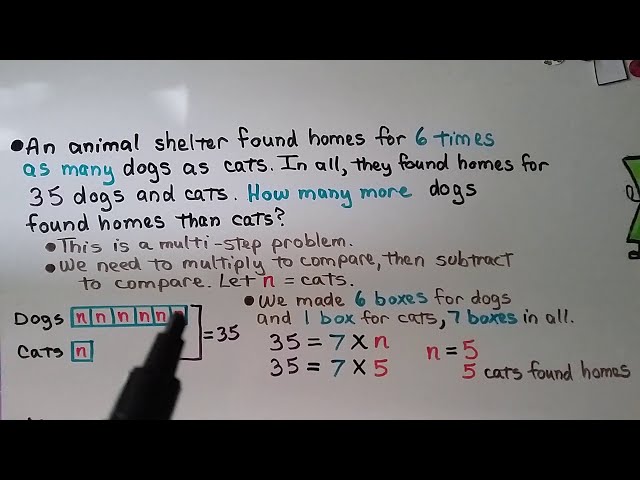 •An animal shelter found homes for 6 times
as many dogs as cats. In all, they found homes for
35 dogs and cats. How many more dogs
found homes than cats?
•This is a multi-step problem.
•We need to multiply to compare, then subtract
to compare. Let n = cats.
•We made 6 boxes for dogs
and 1 box for cats, 7 boxes in all.
Dogs n n n n n
Cats n
=35
35 = 7 x n
35 = 7 x 5
n = 5
5 cats found homes